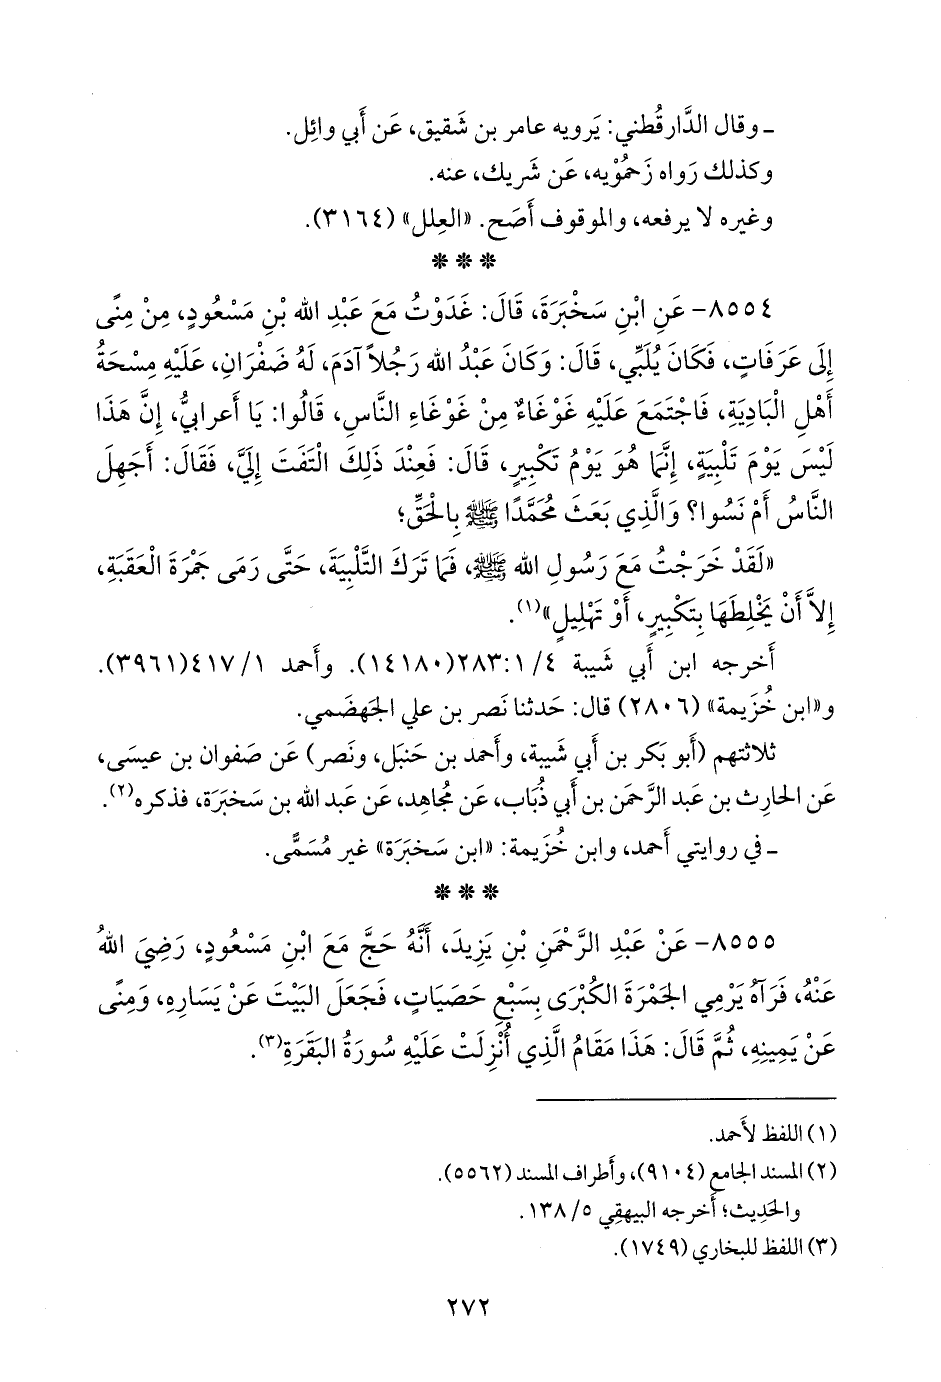 ـ وقال الدَّارقُطني: يَرويه عامر بن شَقيق، عَن أَبي وائِل.
وكذلك رَواه زَحمُوْيه، عَن شَريك، عنه.
وغيره لا يرفعه، والموقوف أَصَح. «العِلل» (٣١٦٤).
* * *
٨٥٥٤- عَنِ ابْنِ سَخْبَرَةَ، قَالَ: غَدَوْتُ مَعَ عَبْدِ الله بْنِ مَسْعُودٍ، مِنْ مِنًى
إِلَى عَرَفَاتٍ، فَكَانَ يُلَبِّي، قَالَ: وَكَانَ عَبْدُ الله رَجُلاً آدَمَ، لَهُ ضَفْرَانِ، عَلَيْهِ مِسْحَةُ
أَهْلِ الْبَادِيَةِ، فَاجْتَمَعَ عَلَيْهِ غَوْغَاءٌ مِنْ غَوْغَاءِ النَّاسِ، قَالُوا: يَا أَعرابيُّ، إِنَّ هَذَا
لَيْسَ يَوْمَ تَلْبِيَةٍ، إِنَّمَا هُوَ يَوْمُ تَكْبِيرٍ، قَالَ: فَعِنْدَ ذَلِكَ الْتَفَتَ إِلَيَّ، فَقَالَ: أَجَهِلَ
النَّاسُ أَمْ نَسُوا؟ وَالَّذِي بَعَثَ مُحَمَّدًا ﷺ بِالْحَقِّ؛
«لَقَدْ خَرَجْتُ مَعَ رَسُولِ الله ﷺ، فَمَا تَرَكَ التَّلْبِيَةَ، حَتَّى رَمَى جَمْرَةَ الْعَقَبَةِ،
إِلاَّ أَنْ يَخْلِطَهَا بِتَكْبِيرٍ، أَوْ تَهْلِيلٍ»(١).
أَخرجه ابن أَبي شَيبة ٤/ ١:٢٨٣(١٤١٨٠). وأَحمد ١/ ٤١٧(٣٩٦١).
و«ابن خُزَيمة» (٢٨٠٦) قال: حَدثنا نَصر بن علي الجَهضَمي.
ثلاثتهم (أَبو بَكر بن أَبي شَيبة، وأَحمد بن حَنبَل، ونَصر) عَن صَفوان بن عيسَى،
عَن الحارِث بن عَبد الرَّحمَن بن أَبي ذُبَاب، عَن مُجاهِد، عَن عَبد الله بن سَخبَرَة، فذكره(٢).
ـ في روايتي أَحمد، وابن خُزَيمة: «ابن سَخبَرَة» غير مُسَمًّى.
* * *
٨٥٥٥- عَنْ عَبْدِ الرَّحْمَنِ بْنِ يَزِيدَ، أَنَّهُ حَجَّ مَعَ ابْنِ مَسْعُودٍ، رَضِيَ اللهُ
عَنْهُ، فَرَآهُ يَرْمِي الجَمْرَةَ الكُبْرَى بِسَبْعِ حَصَيَاتٍ، فَجَعَلَ البَيْتَ عَنْ يَسَارِهِ، وَمِنًى
عَنْ يَمِينِهِ، ثُمَّ قَالَ: هَذَا مَقَامُ الَّذِي أُنْزِلَتْ عَلَيْهِ سُورَةُ البَقَرَةِ(٣).
(١) اللفظ لأَحمد.
(٢) المسند الجامع (٩١٠٤)، وأَطراف المسند (٥٥٦٢).
والحَدِيث؛ أَخرجه البيهقِي ٥/ ١٣٨.
(٣) اللفظ للبخاري (١٧٤٩).
٢٧٢